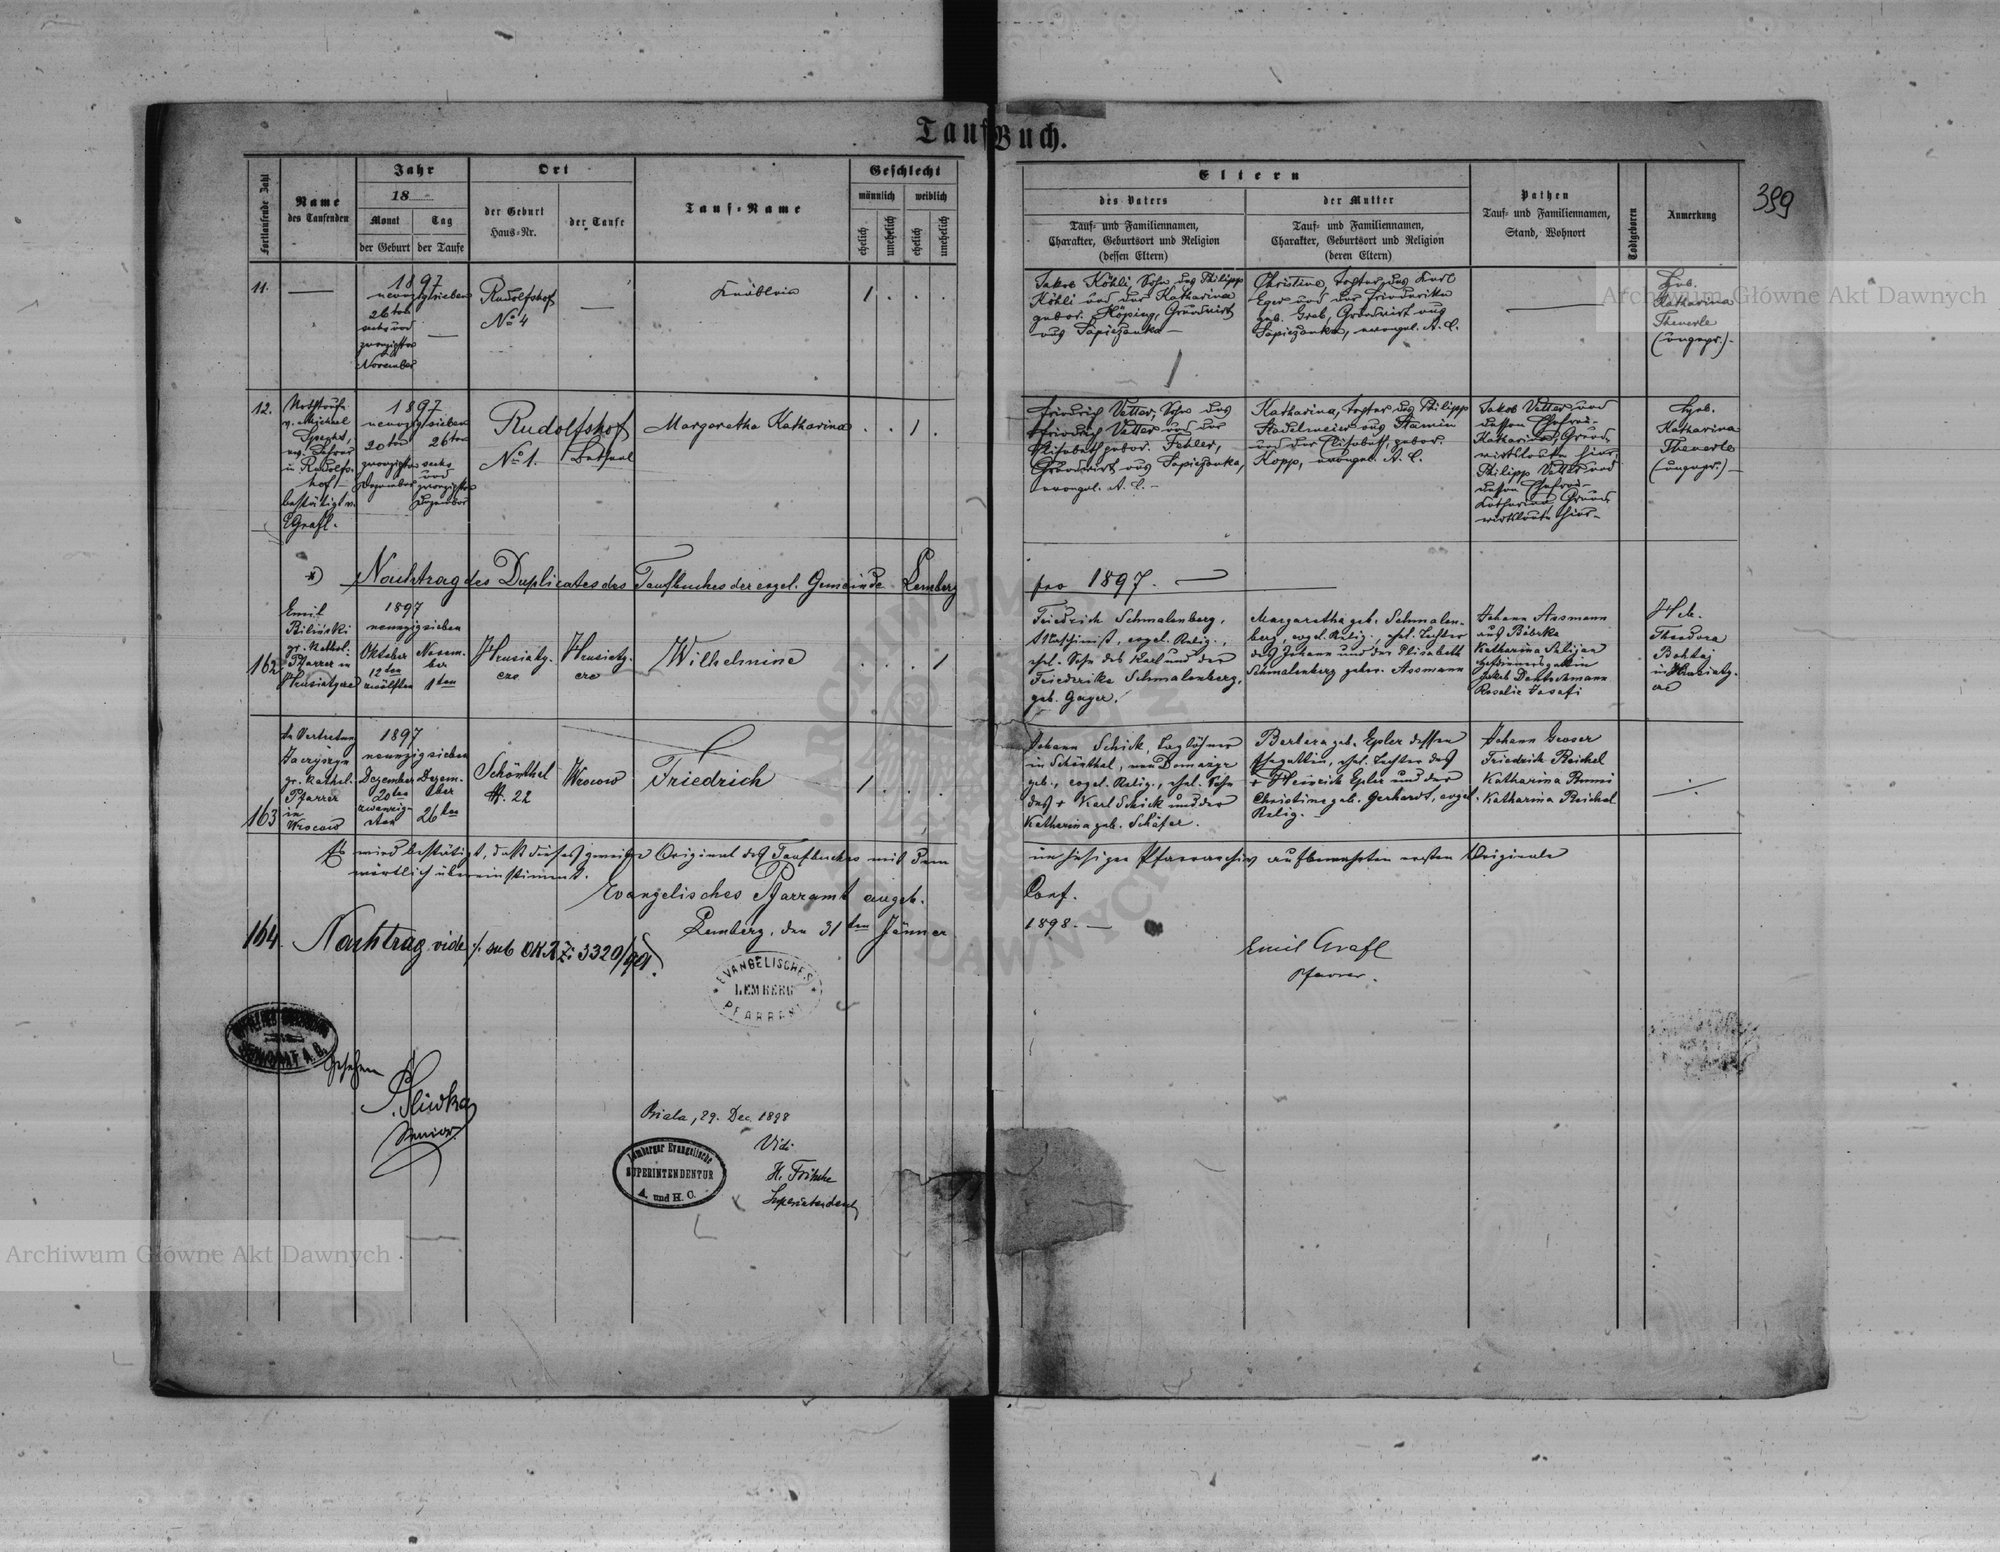 Tauf Buch.
399
Fortlaufende Zahl
Name
des Taufenden
Jahr
18
Monat
Tag
der Geburt
der Taufe
Ort
der Geburt
Haus=Nr.
der Taufe
Tauf=Name
Geschlecht
männlich
weiblich
ehelich
unehelich
ehelich
unehelich
Eltern
des Vaters
Tauf= und Familiennamen,
Charakter, Geburtsort und Religion
(dessen Eltern)
der Mutter
Tauf= und Familiennamen,
Charakter, Geburtsort und Religion
(deren Eltern)
Pathen
Tauf= und Familiennamen,
Stand, Wohnort
Todtgeboren
Anmerkung
11.
1897
neunzigsieben
26ten
sechs und
zwanzigsten
November
Rudolfshof
No 4
Knäblein
1 . . .
Jakob Köhli, Sohn des Philipp
Köhli und der Katharina
gebor. Grundwirt
aus Sapiezanka
Christine, Tochter des Karl
Eger und der Friederike
geb. Grab, Grundwirt aus
Sapiezanka, evangel. A. C.
Heb.
Katharina
Theuerle
(ungepr.)
12.
Nothtaufe
v. Michael
Lehrer
in Rudolfs-
hof
bestätigt v.
EGrafl.
1897
neunzigsieben
20ten
zwanzigsten
Dezember
26ten
sechs
und
zwanzigsten
Dezember
Rudolfshof
No 1.
Bethaal
Margaretha Katharina
. . 1 .
Friedrich Vetter, Sohn des
Friedrich Vetter und der
Elisabeth gebor. Fehler,
Grundwirt aus Sapiezanka,
evangel. A. C.
Katharina, Tochter des Philipp
Stadelmeier aus
und der Elisabeth, gebor.
Kopp, evangel. A. C.
Jakob Vetter und
dessen Ehefrau
Katharina, Grund-
wirtsleute hier,
Philipp Vetter und
dessen Ehefrau
Katharina, Grund-
wirtsleute hier
Heb.
Katharina
Theuerle
(ungepr.)
*) Nachtrag des Duplicates des Taufbuches der evgel. Gemeinde Lemberg pro 1897.
162
Emil
Biliński
gr. kathol.
Pfarrer in
1897
neunzigsieben
Oktober
12ten
zwölften
Novem-
ber
1ten
Hrusiaty-
cze
Hrusiaty-
cze
Wilhelmine
. . . 1
Friedrich Schmalenberg,
Maschinist, evgel. Relig.,
ehel. Sohn des Karl und der
Friederike Schmalenberg,
geb. Gayer.
Margaretha geb. Schmalen-
berg, evgel. Relig., ehel. Tochter
des Johann und der Elisabeth
Schmalenberg gebor. Assmann
Johann Assmann
aus Bóbrka
Katharina
Jakob Deutschmann
Rosalie Josafi
Heb.
Theodora
in Hrusiaty-
cze
163
In Vertretung
gr. kathol.
Pfarrer
in
Wrocow
1897
neunzigsieben
Dezember
20ten
zwanzig-
sten
Dezem-
ber
26ten
Schönthal
N. 22
Wrocow
Friedrich
1 . . .
Johann Schick, Taglöhner
in Schönthal, von
geb., evgel. Relig., ehel. Sohn
des + Karl Schick und der
Katharina geb. Schäfer.
Barbara geb. Epler dessen
Ehegattin, ehel. Tochter des
+ Heinrich Epler und der
Christine geb. Gerhardt, evgel.
Relig.
Johann
Friedrich Reichel
Katharina
Katharina Reichel
Es wird bestätigt, daß dieses zweite Original des Taufbuches mit dem im hiesigen Pfarrarchiv aufbewahrten ersten Originale
wörtlich übereinstimmt.
Evangelisches Pfarramt augsb. Conf.
Lemberg, den 31ten Jänner 1898.
Emil Grafl
Pfarrer.
164. Nachtrag vide ./. sub OKR Z: 3320/
EVANGELISCHES
LEMBERG
PFARRAMT
SENIORAT A. B.
Gesehen
Senior.
Biala, 29. Dec 1898
Vidi
H. Fritsche
Superintendent
Lemberger Evangelische
SUPERINTENDENTUR
A. und H. C.
Archiwum Główne Akt Dawnych
Archiwum Główne Akt Dawnych